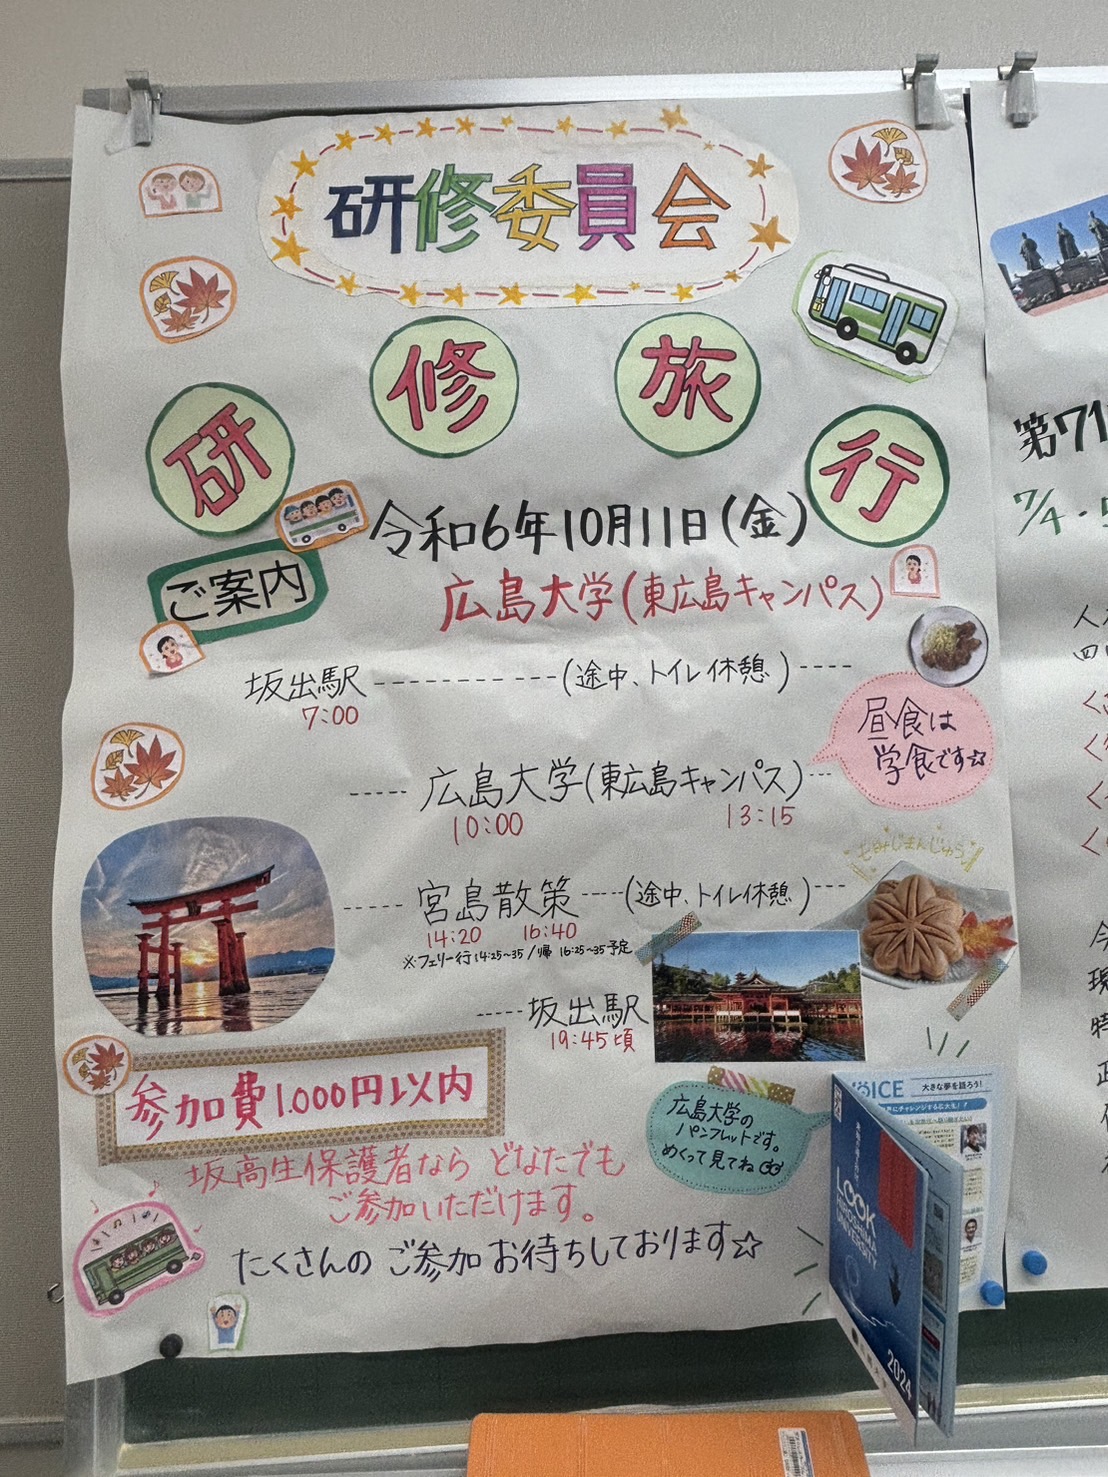 研修委員会
研修旅行
ご案内
令和6年10月11日(金)
広島大学(東広島キャンパス)
坂出駅--------(途中、トイレ休憩)----
7:00
昼食は
学食です☆
-----広島大学(東広島キャンパス)---
10:00 13:15
もみじまんじゅう
-----宮島散策----(途中、トイレ休憩)---
14:20 16:40
※フェリー行14:25~35/帰 16:25~35予定
-----坂出駅
19:45頃
参加費1.000円以内
広島大学の
パンフレットです。
めくって見てね
坂高生保護者なら どなたでも
ご参加いただけます。
たくさんの ご参加お待ちしております☆
VOICE
大きな夢を語ろう!
LOOK
HIROSHIMA
UNIVERSITY
2024
第71
7/4・5